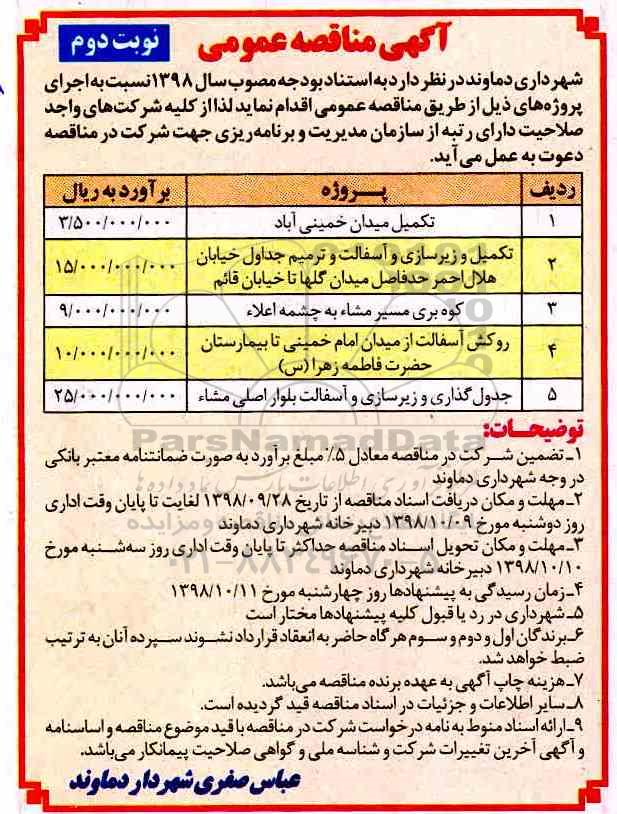 آگهی مناقصه عمومی
نوبت دوم
شهرداری دماوند در نظر دارد به استناد بودجه مصوب سال ۱۳۹۸ نسبت به اجرای
پروژه‌های ذیل از طریق مناقصه عمومی اقدام نماید لذا از کلیه شرکت‌های واجد
صلاحیت دارای رتبه از سازمان مدیریت و برنامه‌ریزی جهت شرکت در مناقصه
دعوت به عمل می‌آید.
ردیف پــروژه برآورد به ریال
۱ تکمیل میدان خمینی آباد ۳/۵۰۰/۰۰۰/۰۰۰
۲ تکمیل و زیرسازی و آسفالت و ترمیم جداول خیابان
هلال‌احمر حدفاصل میدان گلها تا خیابان قائم ۱۵/۰۰۰/۰۰۰/۰۰۰
۳ کوه بری مسیر مشاء به چشمه اعلاء ۹/۰۰۰/۰۰۰/۰۰۰
۴ روکش آسفالت از میدان امام خمینی تا بیمارستان
حضرت فاطمه زهرا (س) ۱۰/۰۰۰/۰۰۰/۰۰۰
۵ جدول‌گذاری و زیرسازی و آسفالت بلوار اصلی مشاء ۲۵/۰۰۰/۰۰۰/۰۰۰
توضیحات:
۱ـ تضمین شرکت در مناقصه معادل ۵٪ مبلغ برآورد به صورت ضمانتنامه معتبر بانکی
در وجه شهرداری دماوند
۲ـ مهلت و مکان دریافت اسناد مناقصه از تاریخ ۱۳۹۸/۰۹/۲۸ لغایت تا پایان وقت اداری
روز دوشنبه مورخ ۱۳۹۸/۱۰/۰۹ دبیرخانه شهرداری دماوند
۳ـ مهلت و مکان تحویل اسناد مناقصه حداکثر تا پایان وقت اداری روز سه‌شنبه مورخ
۱۳۹۸/۱۰/۱۰ دبیرخانه شهرداری دماوند
۴ـ زمان رسیدگی به پیشنهادها روز چهارشنبه مورخ ۱۳۹۸/۱۰/۱۱
۵ـ شهرداری در رد یا قبول کلیه پیشنهادها مختار است
۶ـ برندگان اول و دوم و سوم هرگاه حاضر به انعقاد قرارداد نشوند سپرده آنان به ترتیب
ضبط خواهد شد.
۷ـ هزینه چاپ آگهی به عهده برنده مناقصه می‌باشد.
۸ـ سایر اطلاعات و جزئیات در اسناد مناقصه قید گردیده است.
۹ـ ارائه اسناد منوط به نامه درخواست شرکت در مناقصه با قید موضوع مناقصه و اساسنامه
و آگهی آخرین تغییرات شرکت و شناسه ملی و گواهی صلاحیت پیمانکار می‌باشد.
عباس صفری شهردار دماوند
ParsNamadData